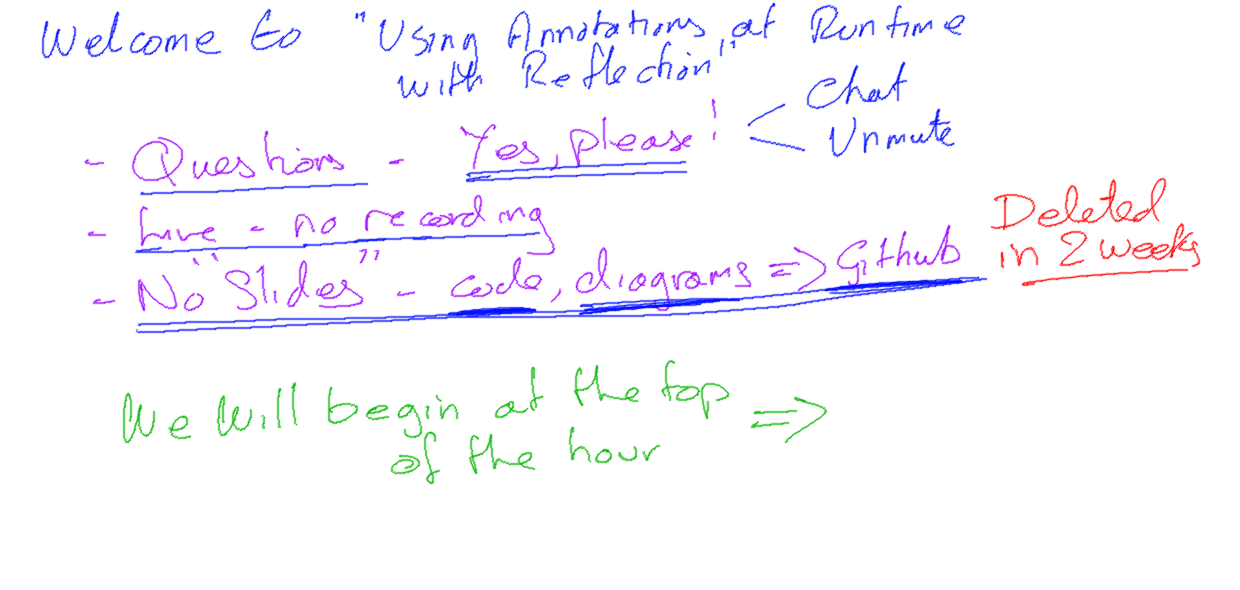 Welcome to "Using Annotations at Runtime
with Reflection"
- Questions - Yes, please! < Chat
Unmute
- Live - no recording
- No "Slides" - code, diagrams => Github
Deleted
in 2 weeks
We will begin at the top =>
of the hour